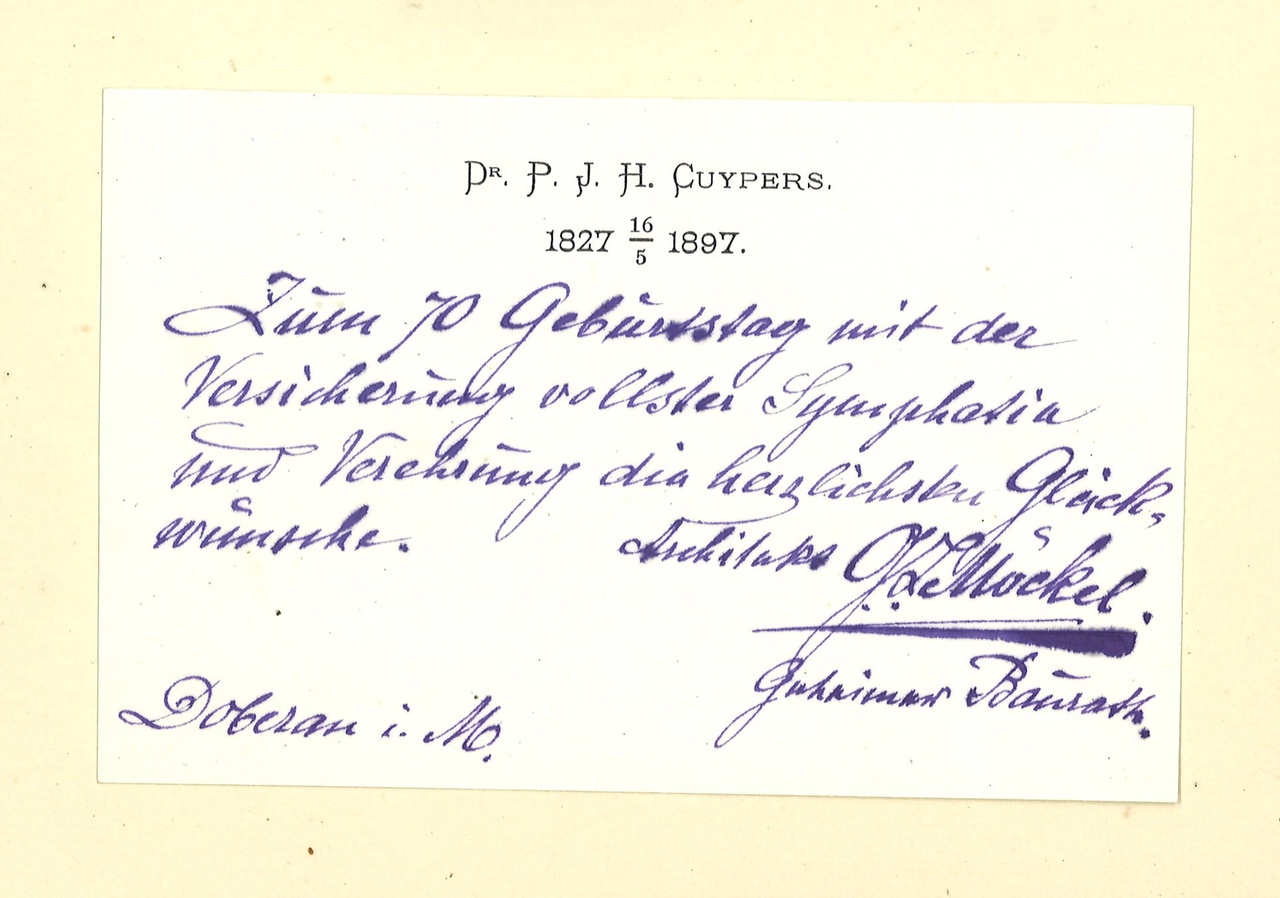 DR. P. J. H. CUYPERS.
1827 16/5 1897.
Zum 70 Geburtstag mit der
Versicherung vollster Symphatie
und Verehrung die herzlichsten Glück-
wünsche. Architekt G. L. Möckel.
Geheimer Baurath.
Doberan i. M.